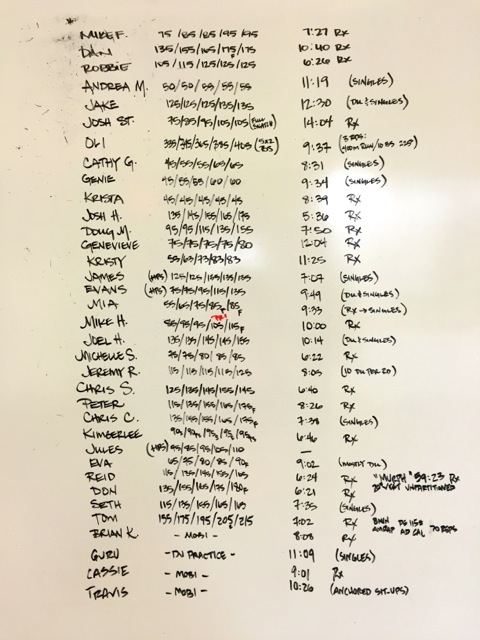 MIKE F. 75/85/85/95/95 7:27 RX
DAN 135/155/165/175F/175 10:40 RX
ROBBIE 105/115/125/125/125 6:26 RX
ANDREA M. 50/50/55/55/55 11:19 (SINGLES)
JAKE 125/125/125/135/135 12:30 (DU & SINGLES)
JOSH ST. 75/85/95/105/105 (FULL SNATCH) 14:04 RX
OLI 335/345/365/385/405 9:37
CATHY G. 45/55/55/65/65 8:31 (SINGLES)
GENIE 45/55/55/60/60 9:34 (SINGLES)
KRISTA 45/45/45/45/45 8:39 RX
JOSH H. 135/145/155/165/175 5:36 RX
DOUG M. 95/95/115/135/155 7:50 RX
GENEVIEVE 75/75/75/75/80 12:04 RX
KRISTY 55/63/73/83/83 11:25 RX
JAMES (HPS) 125/125/135/135/135 7:07 (SINGLES)
EVANS (HPS) 75/75/95/115/135 9:49 (DU & SINGLES)
MIA 55/65/75/85F/85F 9:33 (RX → SINGLES)
MIKE H. 85/95/95/105/115F 10:00 RX
JOEL H. 135/135/145/145/155 10:14 (DU & SINGLES)
MICHELLE S. 75/75/80/85/85 6:22 RX
JEREMY R. 115/115/115/115/125 8:05 (10 DU PER RD)
CHRIS S. 125/135/145/155/145 6:40 RX
PETER 115/135/155/165/175F 8:26 RX
CHRIS C. 135/155/155/165/175F 7:38 (SINGLES)
KIMBERLEE 6:46 RX
JULES (HPS) 85/85/95/105/110 —
EVA 65/75/80/85/90F 9:02 (MOSTLY DU)
REID 115/135/145/155/165 6:24 RX "MURPH" 59:23 RX
DON 135/155/165/175/180F 6:21 RX 20# VEST UNPARTITIONED
SETH 115/135/155/165/165 7:35 (SINGLES)
TOM 155/175/195/205F/215 7:02 RX
BRIAN K. - MOBI - 8:08 RX
GURU - TU PRACTICE - 11:09 (SINGLES)
CASSIE - MOBI - 9:01 RX
TRAVIS - MOBI - 10:26 (ANCHORED SIT-UPS)